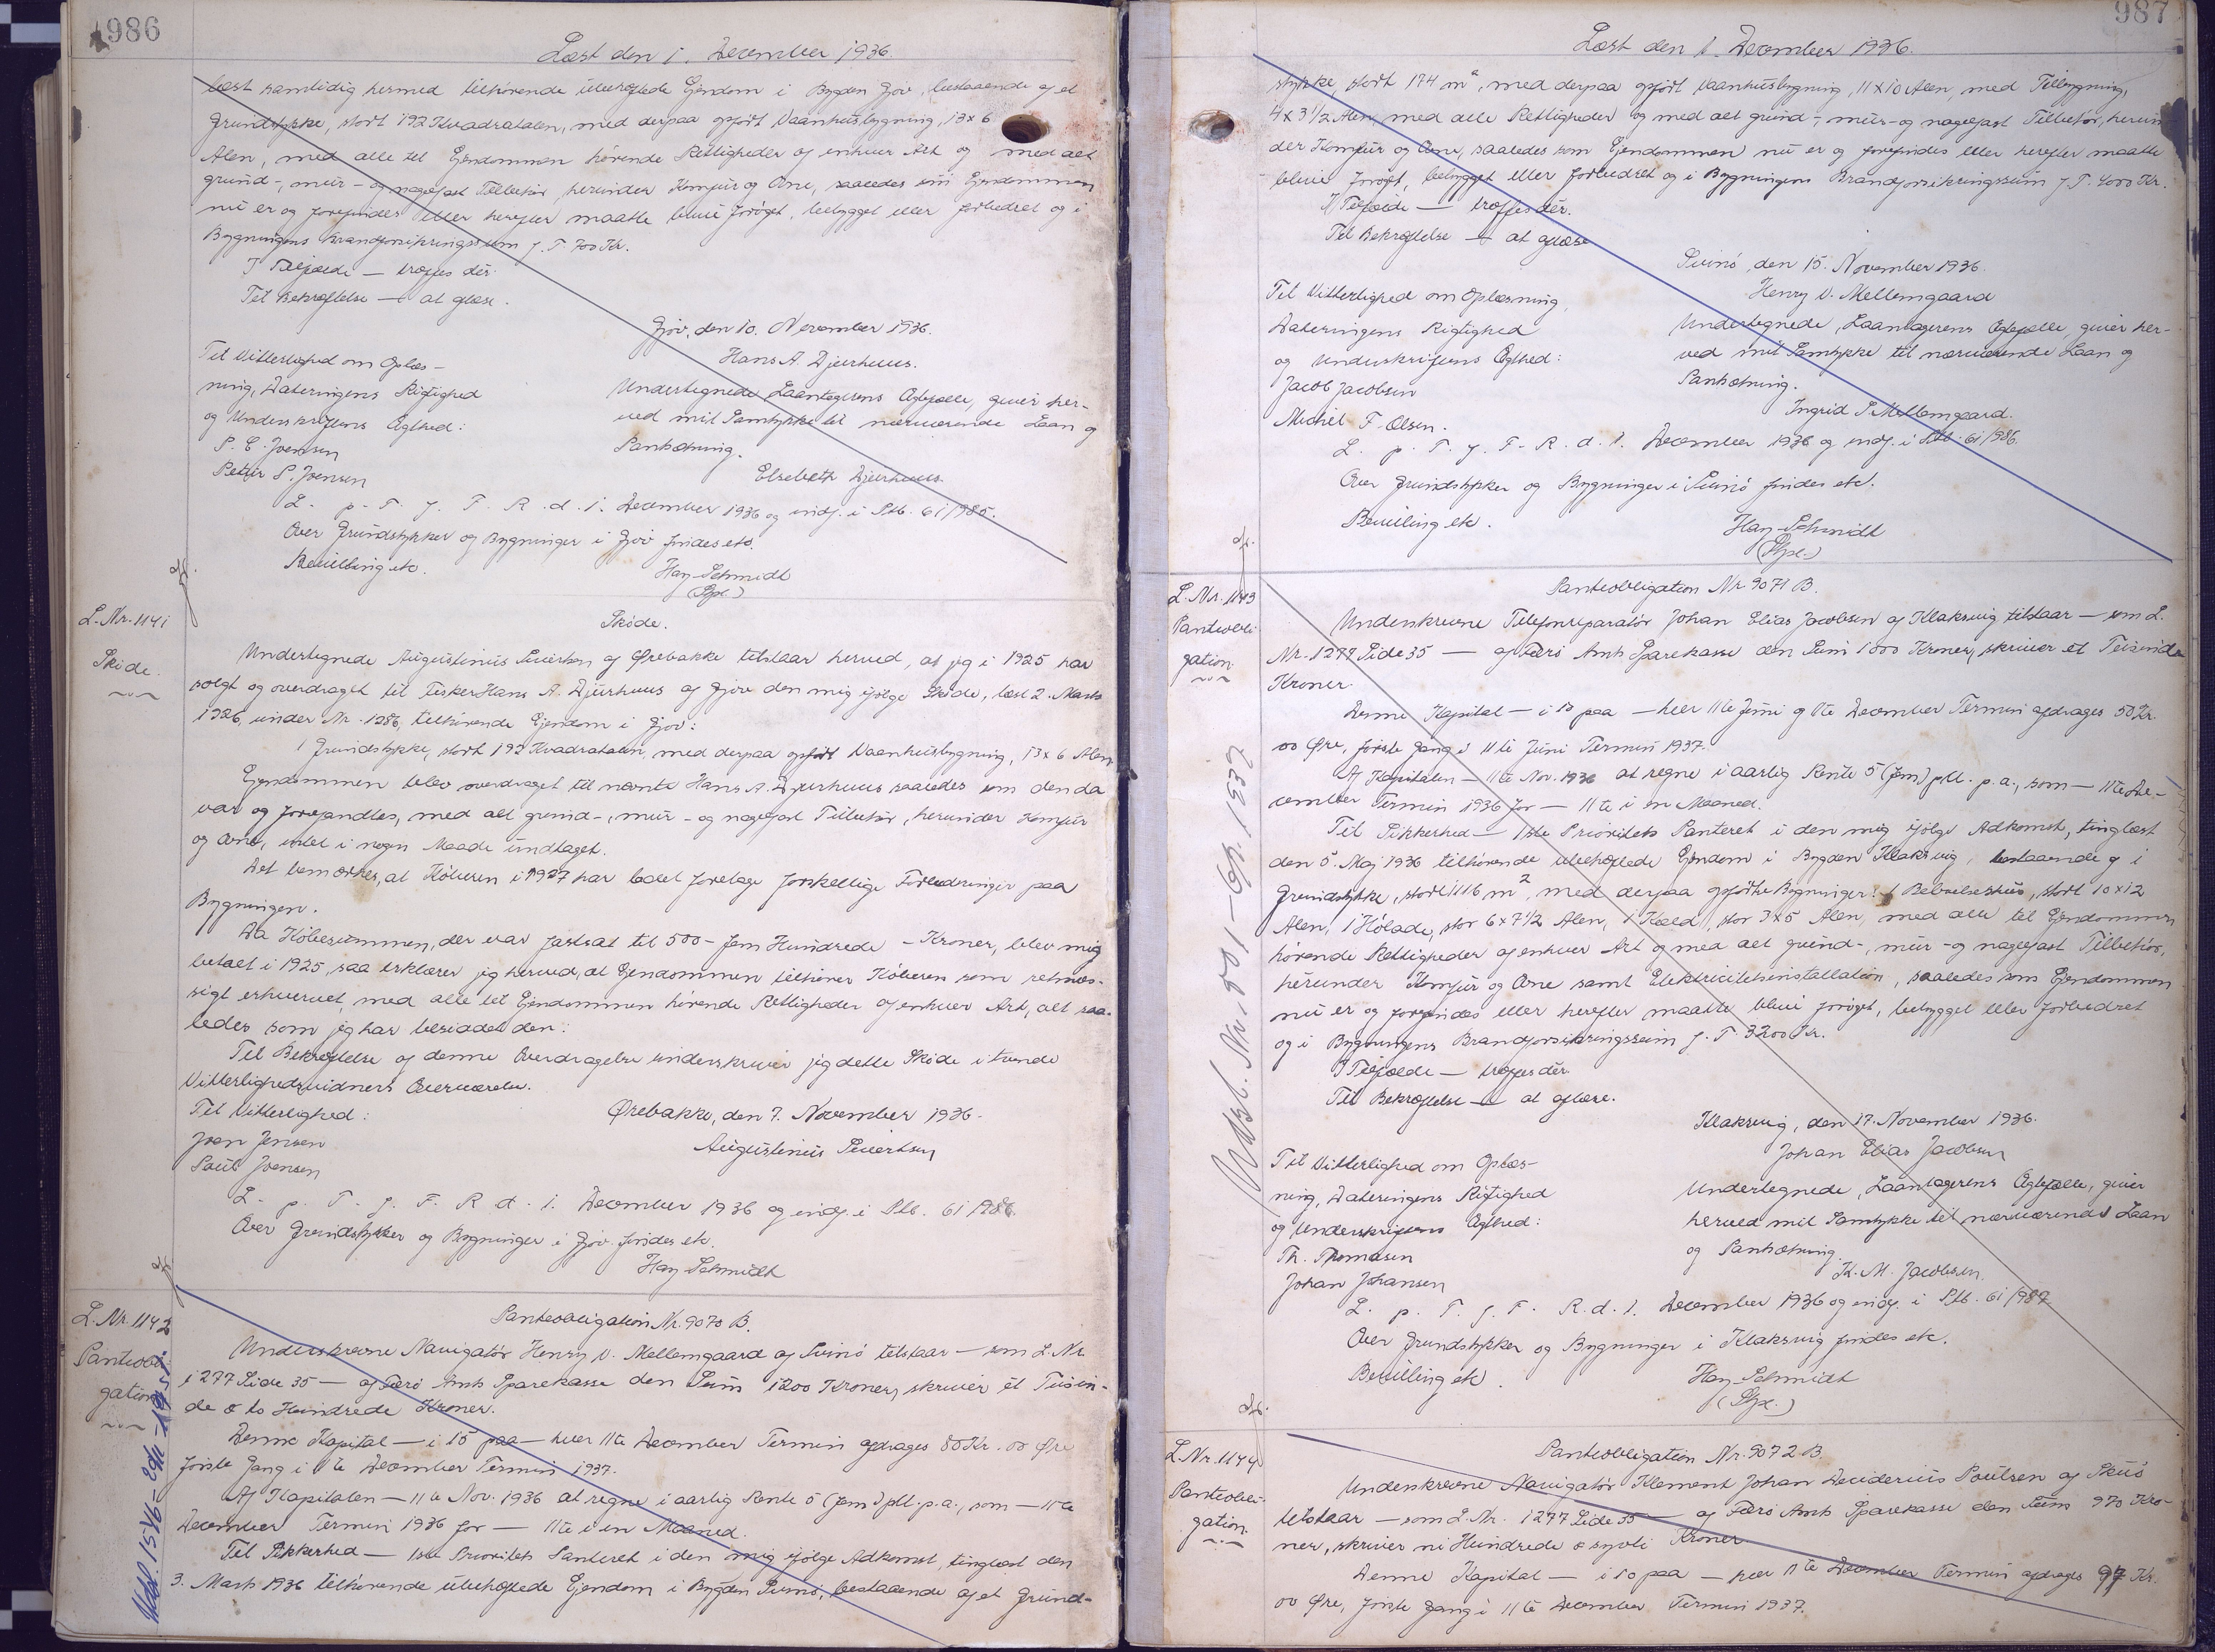 986
Læst den 1. December 1936.
læst samtidig hermed tilhørende ubehæftede Ejendom i Bygden Gjov, bestaaende af et
Grundstykke, stort 192 Kvadratalen, med derpaa opført Vaanhusbygning, 13 x 6
Alen, med alle til Ejendommen hørende Rettigheder af enhver Art og med alt
grund-, mur- og nagelfast Tilbehør, herunder Komfur og Ovne, saaledes som Ejendommen
nu er og forefindes eller herefter maatte blive forøget, bebygget eller forbedret og i
Bygningens Brandforsikringssum f. T. 700 Kr.
I Tilfælde — træffes dér.
Til Bekræftelse — at oplæse.
Gjov, den 10. November 1936.
Til Vitterlighed om Oplæs-
Hans A. Djurhuus.
ning, Dateringens Rigtighed
Undertegnede, Laantagerens Ægtefælle, giver her-
og Underskriftens Ægthed:
ved mit Samtykke til nærværende Laan og
S. E. Joensen
Pantsætning.
Petur P. Joensen
Elsebeth Djurhuus.
L. p. T. f. F. R. d. 1. December 1936 og indf. i Ptb. 61/985.
Over Grundstykker og Bygninger i Gjov findes etc.
Bevilling etc.
Hay-Schmidt
(Stpl.)
L. Nr. 1141
Skøde.
Skøde.
Undertegnede Augustinus Sivertsen af Ørebakke tilstaar herved, at jeg i 1925 har
solgt og overdraget til Fisker Hans A. Djurhuus af Gjov den mig ifølge Skøde, læst 2. Marts
1926, under Nr. 1286, tilhørende Ejendom i Gjov:
1 Grundstykke, stort 192 Kvadratalen, med derpaa opført Vaanhusbygning, 13 x 6 Alen.
Ejendommen blev overdraget til nævnte Hans A. Djurhuus saaledes som den da
var og forefandtes, med alt grund-, mur- og nagelfast Tilbehør, herunder Komfur
og Ovne, intet i nogen Maade undtaget.
Det bemærkes, at Køberen i 1927 har ladet foretage forskellige Forbedringer paa
Bygningen.
Da Købesummen, der var fastsat til 500 - fem Hundrede - Kroner, blev mig
betalt i 1925, saa erklærer jeg herved, at Ejendommen tilhører Køberen som retmæs-
sigt erhvervet, med alle til Ejendommen hørende Rettigheder af enhver Art, alt saa-
ledes som jeg har besiddet den.
Til Bekræftelse af denne Overdragelse underskriver jeg dette Skøde i tvende
Vitterlighedsvidners Overværelse.
Til Vitterlighed:
Ørebakke, den 7. November 1936.
Joen Jensen
Augustinus Sivertsen
Poul Joensen
L. p. T. f. F. R. d. 1. December 1936 og indf. i Ptb. 61/986
Over Grundstykker og Bygninger i Gjov findes etc.
Hay-Schmidt
L. Nr. 1142
Panteobli-
gation
Udsl. 15/6
Panteobligation Nr. 9070 B.
Underskrevne Navigatør Henry V. Mellemgaard af Svinø tilstaar — som L. Nr.
1277 Side 35 — af Færø Amts Sparekasse den Sum 1200 Kroner, skriver et Tusin-
de & to Hundrede Kroner.
Denne Kapital — i 15 paa — hver 11te December Termin afdrages 80 Kr. 00 Øre
første Gang i 11te December Termin 1937.
Af Kapitalen — 11te Nov. 1936 at regne i aarlig Rente 5 (fem) pCt. p.a., som — 11te
December Termin 1936 for — 11te i en Maaned.
Til Sikkerhed — 1ste Prioritets Panteret i den mig ifølge Adkomst, tinglæst den
3. Marts 1936 tilhørende ubehæftede Ejendom i Bygden Svinø, bestaaende af et Grund-
987
Læst den 1. December 1936.
stykke, stort 174 m², med derpaa opført Vaanhusbygning, 11 x 10 Alen, med Tilbygning,
4 x 3 1/2 Alen, med alle Rettigheder og med alt grund-, mur- og nagelfast Tilbehør, herun-
der Komfur og Ovne, saaledes som Ejendommen nu er og forefindes eller herefter maatte
blive forøget, bebygget eller forbedret og i Bygningens Brandforsikringssum f. T. 4000 Kr.
I Tilfælde — træffes dér.
Til Bekræftelse — at oplæse
Svinø, den 15. November 1936.
Til Vitterlighed om Oplæsning,
Henry V. Mellemgaard
Dateringens Rigtighed
Undertegnede, Laantagerens Ægtefælle, giver her-
og Underskriftens Ægthed:
ved mit Samtykke til nærværende Laan og
Jacob Jacobsen
Pantsætning.
Michel F. Olsen.
Ingrid S. Mellemgaard.
L. p. T. f. F. R. d. 1. December 1936 og indf. i Ptb. 61/986.
Over Grundstykker og Bygninger i Svinø findes etc.
Bevilling etc.
Hay-Schmidt
(Stpl.)
L. Nr. 1143
Panteobli-
gation.
Udsl. Nr. 501 1937
Panteobligation Nr. 9071 B.
Underskrevne Telefonreparatør Johan Elias Jacobsen af Klaksvig tilstaar — som L.
Nr. 1277 Side 35 — af Færø Amts Sparekasse den Sum 1000 Kroner, skriver et Tusinde
Kroner.
Denne Kapital — i 10 paa — hver 11te Juni og 11te December Termin afdrages 50 Kr.
00 Øre, første Gang i 11te Juni Termin 1937.
Af Kapitalen — 11te Nov. 1936 at regne i aarlig Rente 5 (fem) pCt. p.a., som — 11te De-
cember Termin 1936 for — 11te i en Maaned.
Til Sikkerhed — 1ste Prioritets Panteret i den mig ifølge Adkomst, tinglæst
den 5. Maj 1936 tilhørende ubehæftede Ejendom i Bygden Klaksvig, bestaaende af 1
Grundstykke, stort 1116 m², med derpaa opførte Bygninger: 1 Beboelseshus, stort 10 x 12
Alen, 1 Hølade, stor 6 x 7 1/2 Alen, 1 Kæld, stor 3 x 5 Alen, med alle til Ejendommen
hørende Rettigheder af enhver Art og med alt grund-, mur- og nagelfast Tilbehør,
herunder Komfur og Ovne samt Elektricitetsinstallation, saaledes som Ejendommen
nu er og forefindes eller herefter maatte blive forøget, bebygget eller forbedret
og i Bygningens Brandforsikringssum f. T. 3200 Kr.
I Tilfælde — træffes dér.
Til Bekræftelse — at oplæse.
Klaksvig, den 17. November 1936.
Til Vitterlighed om Oplæs-
Johan Elias Jacobsen
ning, Dateringens Rigtighed
Undertegnede, Laantagerens Ægtefælle, giver
og Underskriftens Ægthed:
herved mit Samtykke til nærværende Laan
Th. Thomasen
og Pantsætning.
Johan Johansen
K. M. Jacobsen.
L. p. T. f. F. R. d. 1. December 1936 og indf. i Ptb. 61/987
Over Grundstykker og Bygninger i Klaksvig findes etc.
Bevilling etc.
Hay-Schmidt
(Stpl.)
L. Nr. 1144
Panteobli-
gation.
Panteobligation Nr. 9072 B.
Underskrevne Navigatør Klement Johan Deciderius Poulsen af Skuø
tilstaar — som L. Nr. 1277 Side 35 — af Færø Amts Sparekasse den Sum 970 Kro-
ner, skriver ni Hundrede & syvti Kroner
Denne Kapital — i 10 paa — hver 11te December Termin afdrages 97 Kr.
00 Øre, første Gang i 11te December Termin 1937.